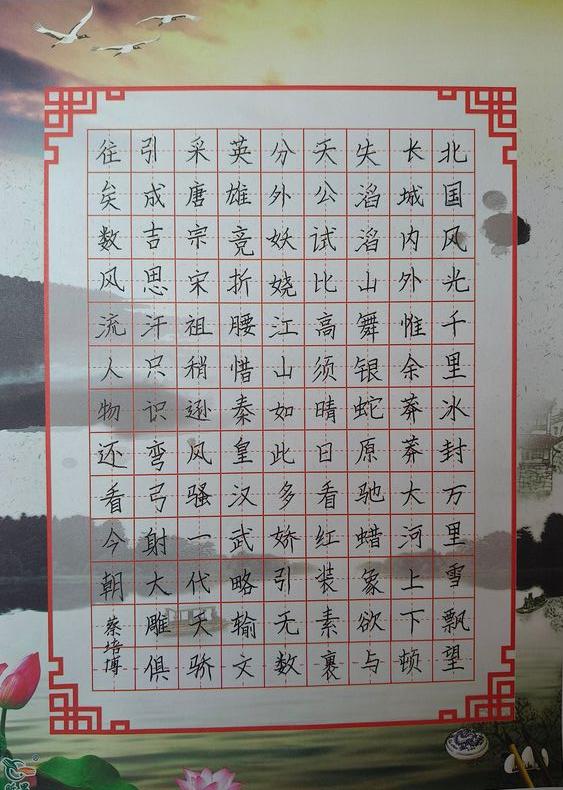 北国风光千里冰封万里雪飘望
长城内外惟余莽莽大河上下顿
失滔滔山舞银蛇原驰蜡象欲与
天公试比高须晴日看红装素裹
分外妖娆江山如此多娇引无数
英雄竞折腰惜秦皇汉武略输文
采唐宗宋祖稍逊风骚一代天骄
引成吉思汗只识弯弓射大雕俱
往矣数风流人物还看今朝
蔡培博